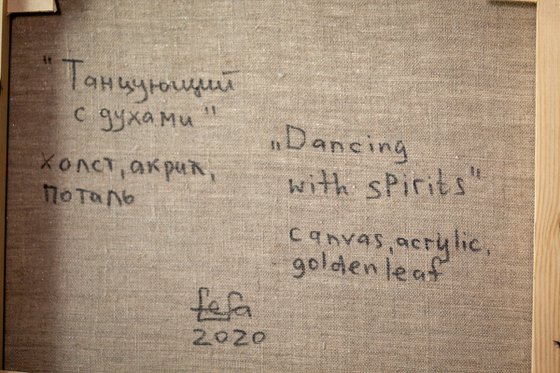 "Танцующий
с духами"
холст, акрил,
поталь
„Dancing
with spirits"
canvas, acrylic,
goldenleaf
fefa
2020